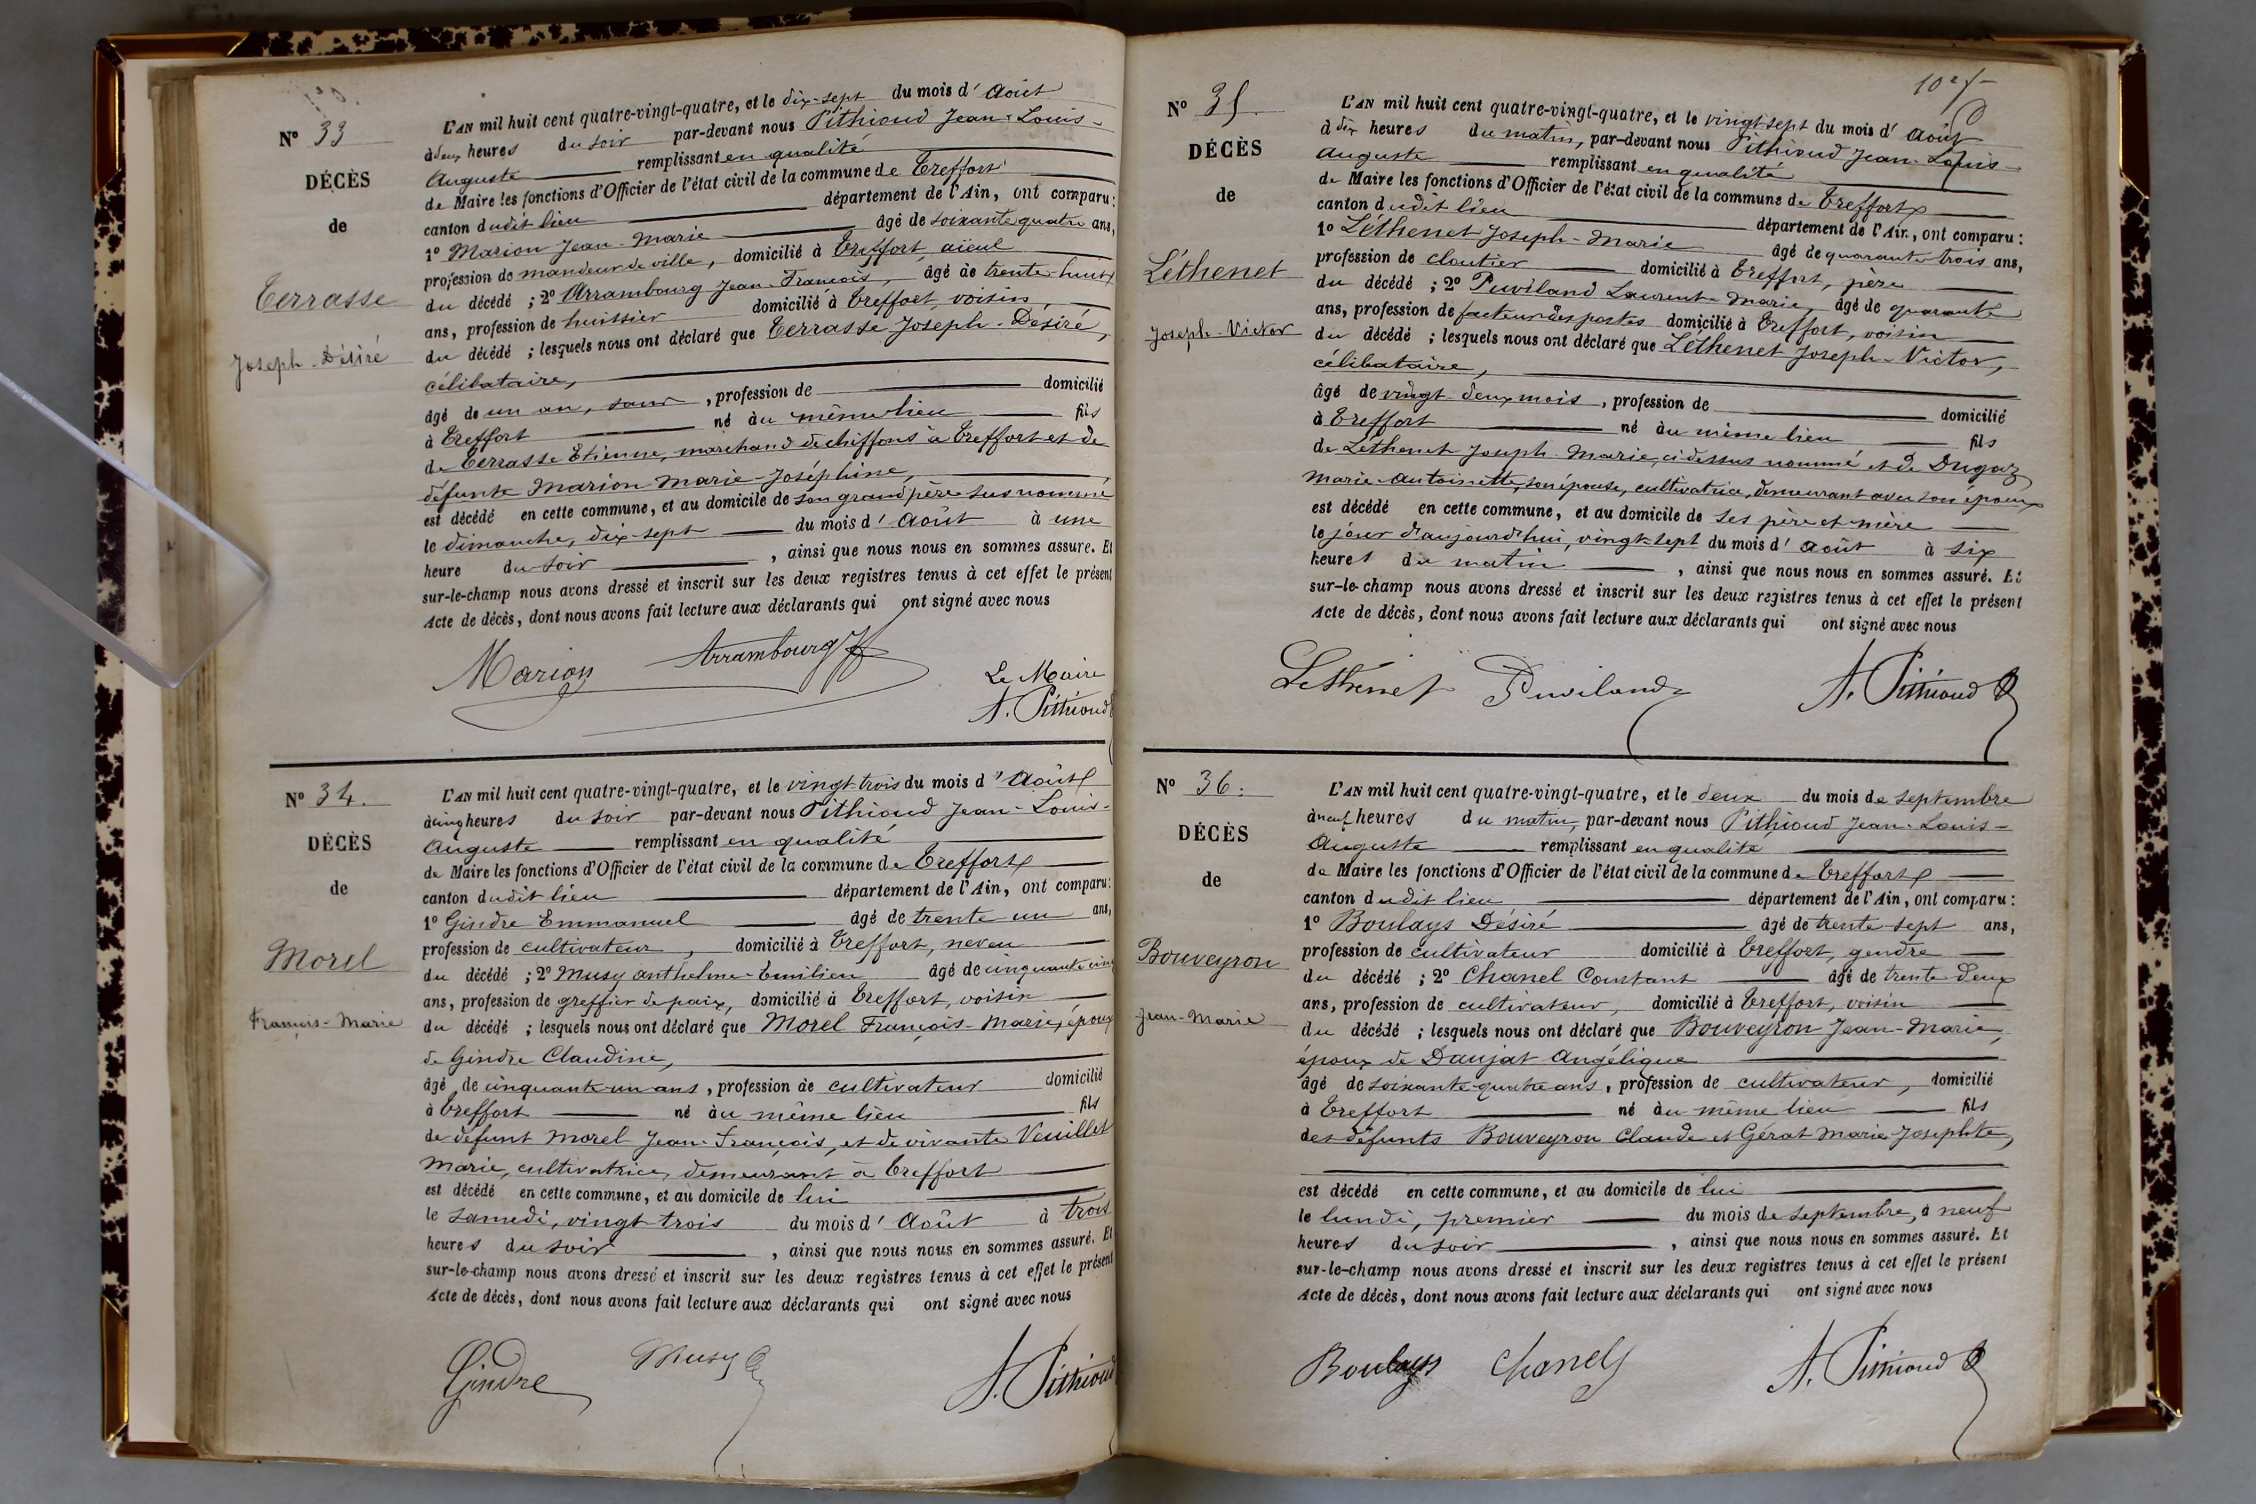 N° 33
DÉCÈS
de
Terrasse
Joseph-Désiré
L'AN mil huit cent quatre-vingt-quatre, et le dix-sept du mois d'Août
à deux heures du soir par-devant nous Pithioud Jean-Louis-
Auguste remplissant en qualité
de Maire les fonctions d'Officier de l'état civil de la commune de Treffort
canton dudit lieu département de l'Ain, ont comparu:
1° Marion Jean-Marie âgé de soixante quatre ans,
profession de mandeur de ville, domicilié à Treffort, aïeul
du décédé ; 2° Arrambourg Jean-François, âgé de trente-huit
ans, profession de huissier domicilié à Treffort, voisin,
du décédé ; lesquels nous ont déclaré que Terrasse Joseph-Désiré,
célibataire,
âgé de un an, sans, profession de domicilié
à Treffort né au même lieu fils
de Terrasse Etienne, marchand de chiffons à Treffort et de
défunte Marion Marie Joséphine,
est décédé en cette commune, et au domicile de son grand père sus nommé
le dimanche, dix-sept du mois d'Août à une
heure du soir, ainsi que nous nous en sommes assuré. Et
sur-le-champ nous avons dressé et inscrit sur les deux registres tenus à cet effet le présent
Acte de décès, dont nous avons fait lecture aux déclarants qui ont signé avec nous
Marion Arrambourg Jf
Le Maire
A. Pithioud
N° 34.
DÉCÈS
de
Morel
François-Marie
L'AN mil huit cent quatre-vingt-quatre, et le vingt-trois du mois d'Août
à cinq heures du soir par-devant nous Pithioud Jean-Louis-
Auguste remplissant en qualité
de Maire les fonctions d'Officier de l'état civil de la commune de Treffort
canton dudit lieu département de l'Ain, ont comparu:
1° Gindre Emmanuel âgé de trente un ans,
profession de cultivateur, domicilié à Treffort, neveu
du décédé ; 2° Musy Anthelme-Emilien âgé de cinquante cinq
ans, profession de greffier de paix, domicilié à Treffort, voisin
du décédé ; lesquels nous ont déclaré que Morel François-Marie, époux
de Gindre Claudine,
âgé de cinquante-un ans, profession de cultivateur domicilié
à Treffort né au même lieu fils
de défunt Morel Jean-François, et de vivante Veuillet
Marie, cultivatrice, demeurant à Treffort
est décédé en cette commune, et au domicile de lui
le samedi, vingt-trois du mois d'Août à trois
heures du soir, ainsi que nous nous en sommes assuré. Et
sur-le-champ nous avons dressé et inscrit sur les deux registres tenus à cet effet le présent
Acte de décès, dont nous avons fait lecture aux déclarants qui ont signé avec nous
Gindre Musy A. Pithioud
N° 35
DÉCÈS
de
Léthenet
Joseph-Victor
L'AN mil huit cent quatre-vingt-quatre, et le vingt-sept du mois d'Août
à dix heures du matin, par-devant nous Pithioud Jean-Louis-
Auguste remplissant en qualité
de Maire les fonctions d'Officier de l'état civil de la commune de Treffort
canton dudit lieu département de l'Ain, ont comparu:
1° Léthenet Joseph-Marie âgé de quarante trois ans,
profession de cloutier domicilié à Treffort, père
du décédé ; 2° Puviland Laurent-Marie, âgé de quarante
ans, profession de facteur des postes domicilié à Treffort, voisin
du décédé ; lesquels nous ont déclaré que Léthenet Joseph-Victor,
célibataire,
âgé de vingt-deux mois, profession de domicilié
à Treffort né au même lieu fils
de Léthenet Joseph-Marie, ci dessus nommé et de Dugaz
Marie-Antoinette, son épouse, cultivatrice, demeurant avec son époux
est décédé en cette commune, et au domicile de ses père et mère
le jour d'aujourd'hui, vingt-sept du mois d'Août à six
heures du matin, ainsi que nous nous en sommes assuré. Et
sur-le-champ nous avons dressé et inscrit sur les deux registres tenus à cet effet le présent
Acte de décès, dont nous avons fait lecture aux déclarants qui ont signé avec nous
Lethenet Puviland A. Pithioud
N° 36.
DÉCÈS
de
Bouveyron
Jean-Marie
L'AN mil huit cent quatre-vingt-quatre, et le deux du mois de septembre
à neuf heures du matin, par-devant nous Pithioud Jean-Louis-
Auguste remplissant en qualité
de Maire les fonctions d'Officier de l'état civil de la commune de Treffort
canton dudit lieu département de l'Ain, ont comparu:
1° Boulays Désiré âgé de trente-sept ans,
profession de cultivateur domicilié à Treffort, gendre
du décédé ; 2° Chanel Constant âgé de trente-deux
ans, profession de cultivateur, domicilié à Treffort, voisin
du décédé ; lesquels nous ont déclaré que Bouveyron Jean-Marie,
époux de Daujat Angélique
âgé de soixante-quatre ans, profession de cultivateur, domicilié
à Treffort né au même lieu fils
des défunts Bouveyron Claude et Gérat Marie-Josephte,
est décédé en cette commune, et au domicile de lui
le lundi, premier du mois de septembre, à neuf
heures du soir, ainsi que nous nous en sommes assuré. Et
sur-le-champ nous avons dressé et inscrit sur les deux registres tenus à cet effet le présent
Acte de décès, dont nous avons fait lecture aux déclarants qui ont signé avec nous
Boulays Chanel A. Pithioud